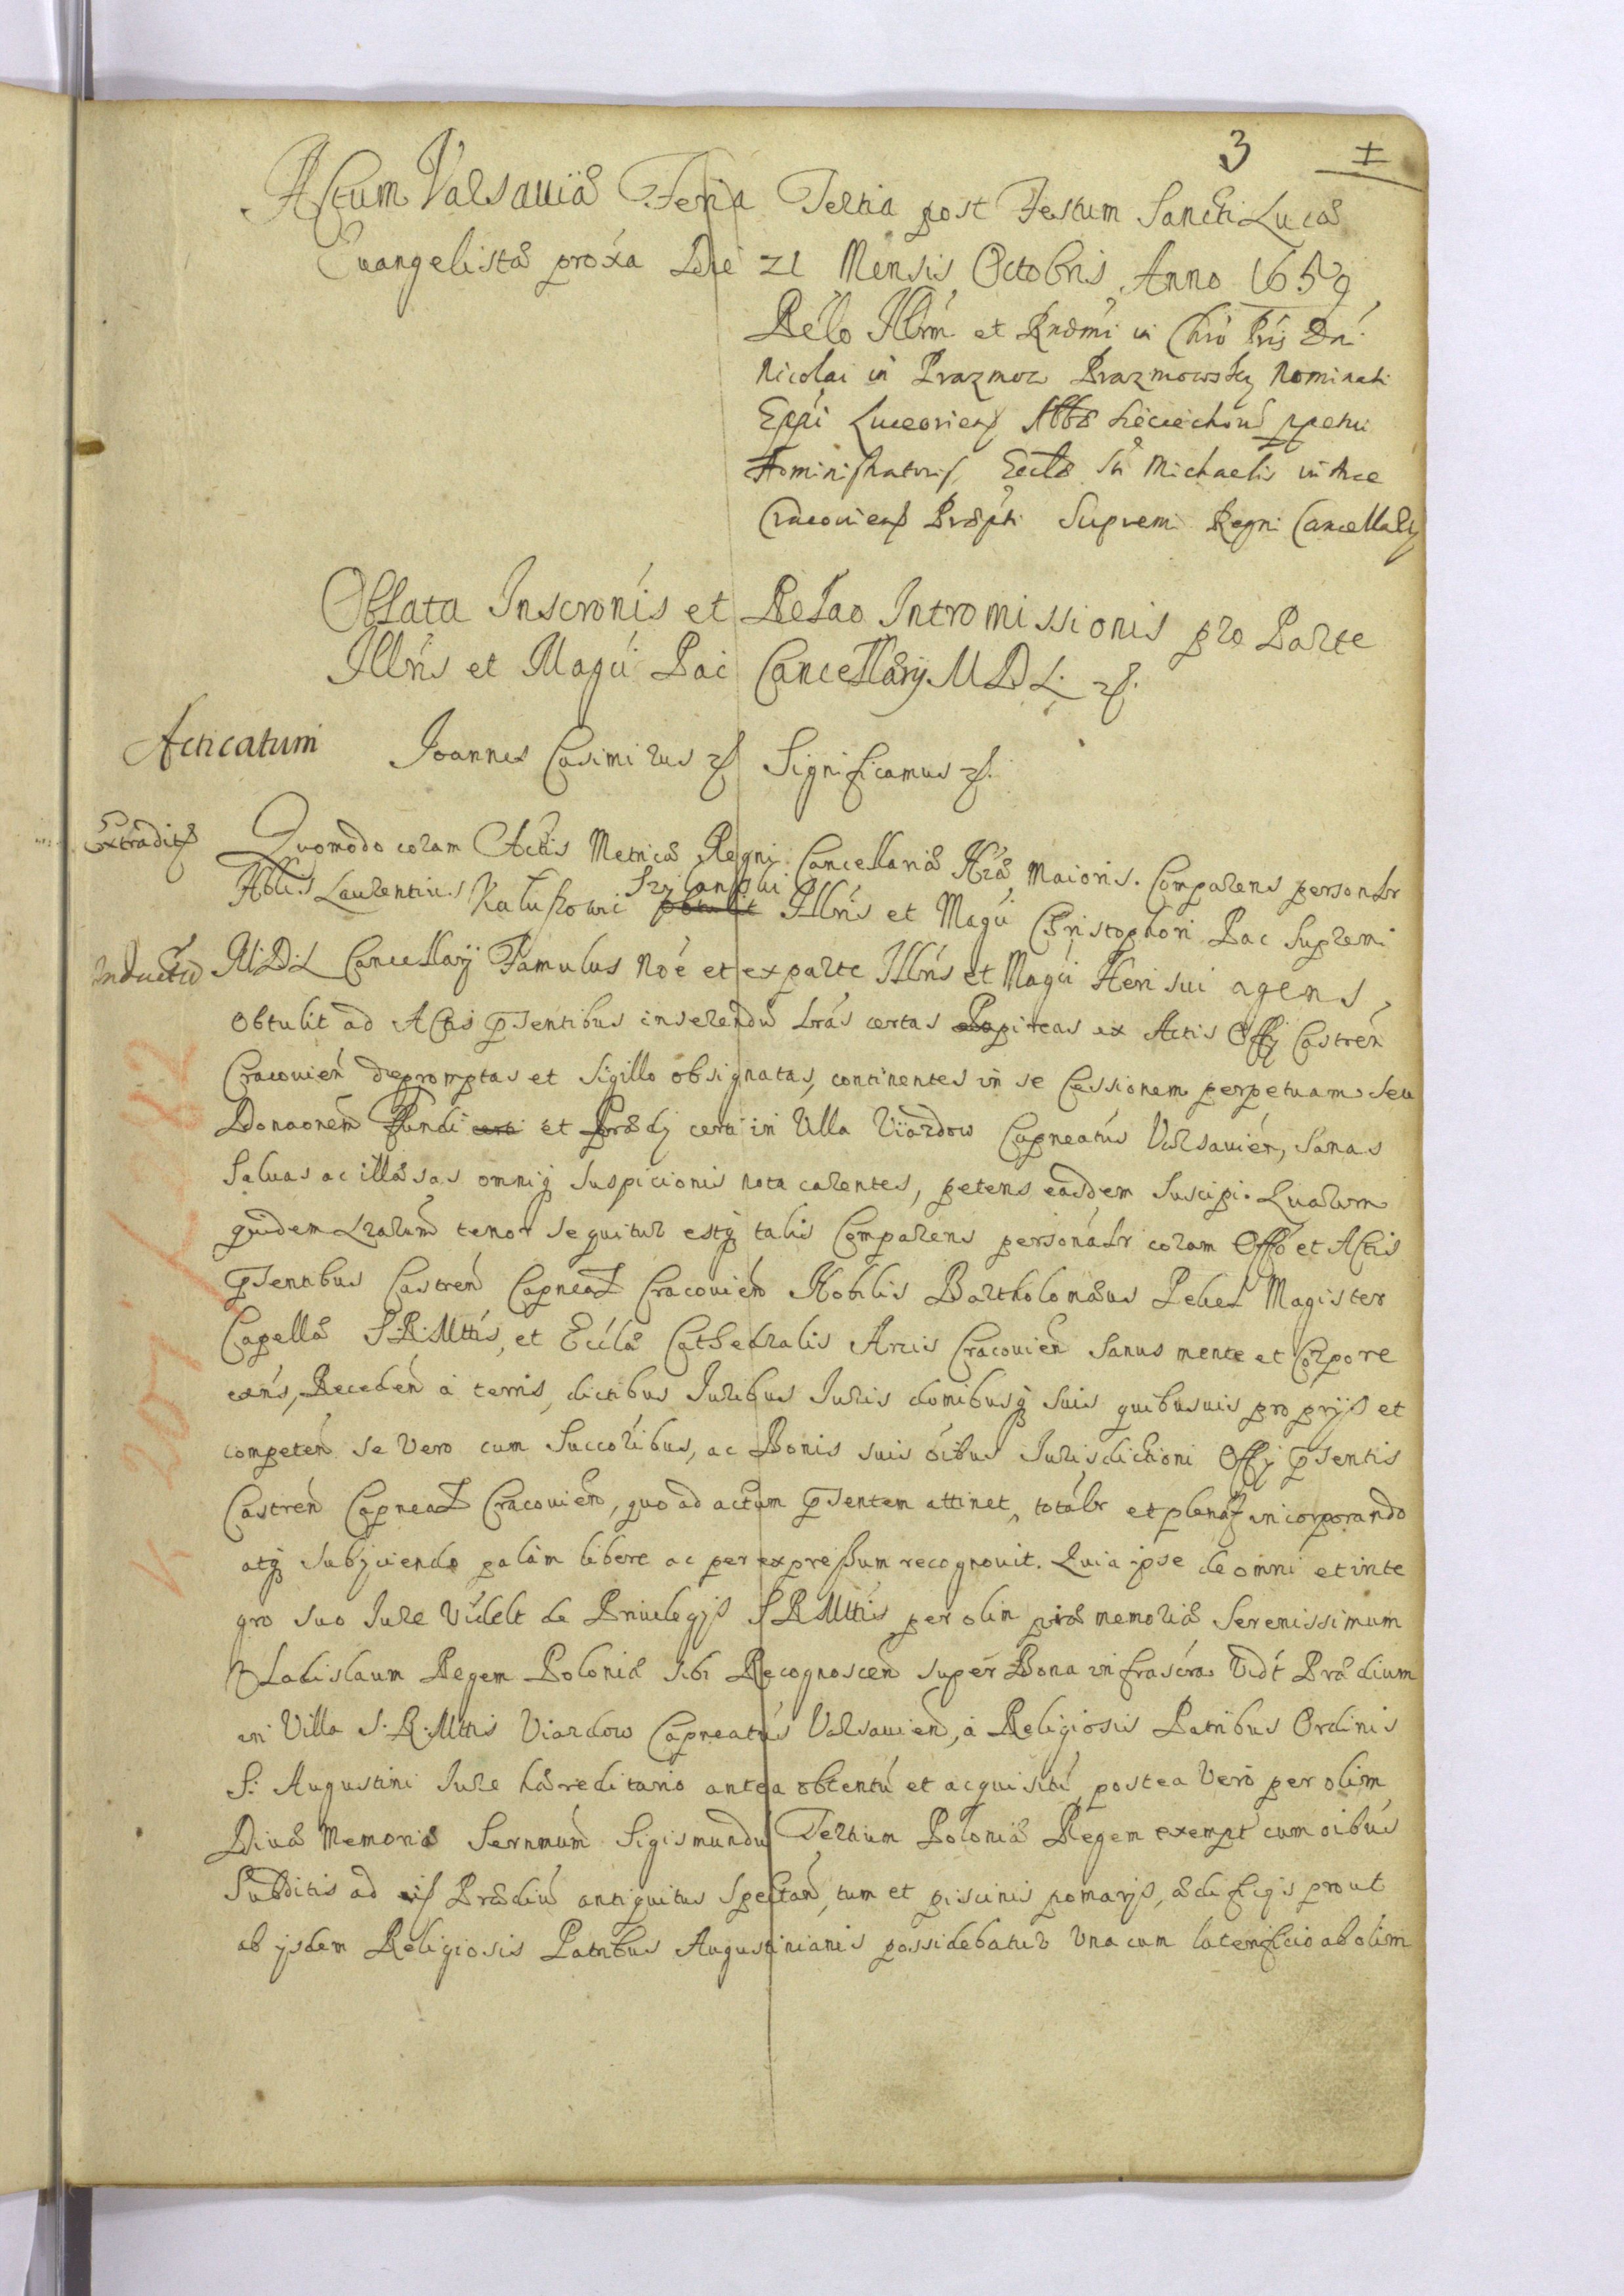 3 I
Actum Varsauiæ Feria Tertia post Festum Sancti Lucæ
Euangelistæ proxa Die 21 Mensis Octobris Anno 1659
Relo Illrm et Rndmi in Chro Pris Dni
Nicolai in Prazmow Prazmowsky Nominati
Eppi Luceorien Abbæ Sieciechou ppetui
Administratoris Eccæ Sti Michaelis in Arce
Cracouien Præpti Supremi Regni Cancellarij
Oblata Inscronis et Relao Intromissionis pro Parte
Illris et Magci Pac Cancellarij M D L. etc.
Acticatum Joannes Casimirus etc Significamus etc.
Extradit Quomodo coram Actis Metricæ Regni Cancellariæ Nræ Maioris. Comparens personlr
Nblis Laurentius Kaluskowi obtulit Illris et Magci Christophori Pac Supremi
Inductu M.D.L Cancellarij Famulus Noe et ex parte Illris et Magci Heri sui agens,
obtulit ad Acta psentibus inserendu Lras certas papireas ex Actis Offij Castren
Cracouien depromptas et sigillo obsignatas, continentes in se Cessionem perpetuam seu
Donaonem Fundi certi et Prædij certi in Villa Viazdow Capneatus Varsauien, sanas
saluas ac illæsas omniq suspicionis nota carentes, petens easdem suscipi. Quarum
quidem Lrarum tenor sequitur estq talis Comparens personalr coram Offo et Actis
psentibus Castren Capneal Cracouien Nobilis Bartholomæus Pekel Magister
Capellæ S.R.Mttis, et Ecclæ Cathedralis Arcis Cracouien sanus mente et Corpore
exns, Receden a terris, dictibus Juribus Juris domibusq suis quibusuis proprijs et
competen se vero cum Succoribus, ac Bonis suis oibus Jurisdictioni Offij psentis
Castren Capneal Cracouien, quo ad actum psentem attinet, totalr et plenar incorporando
atq subijciendo palam libere ac per expressum recognouit. Quia ipse de omni et inte
gro suo Jure Videlt de Priuilegijs S R Mttis per olim piæ memoriæ Serenissimum
Vladislaum Regem Poloniæ sibi Recognoscen super Bona infrascra Vidt Prædium
in Villa S.R.Mttis Viazdow Capneatus Varsauien, a Religiosis Patribus Ordinis
S. Augustini Jure hæreditario antea obtentu et acquisitu, postea vero per olim
Diuæ Memoriæ Sernmum Sigismundu Tertium Poloniæ Regem exempt cum oibus
Subditis ad Prædiu antiquitus spectan, tum et piscinis pomarijs, ædificijs prout
ab ijsdem Religiosis Patribus Augustinianis possidebatur Una cum laterificio ab olim